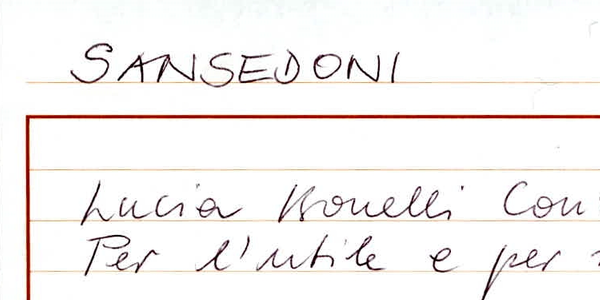 SANSEDONI
Lucia Bonelli Con
Per l'utile e per